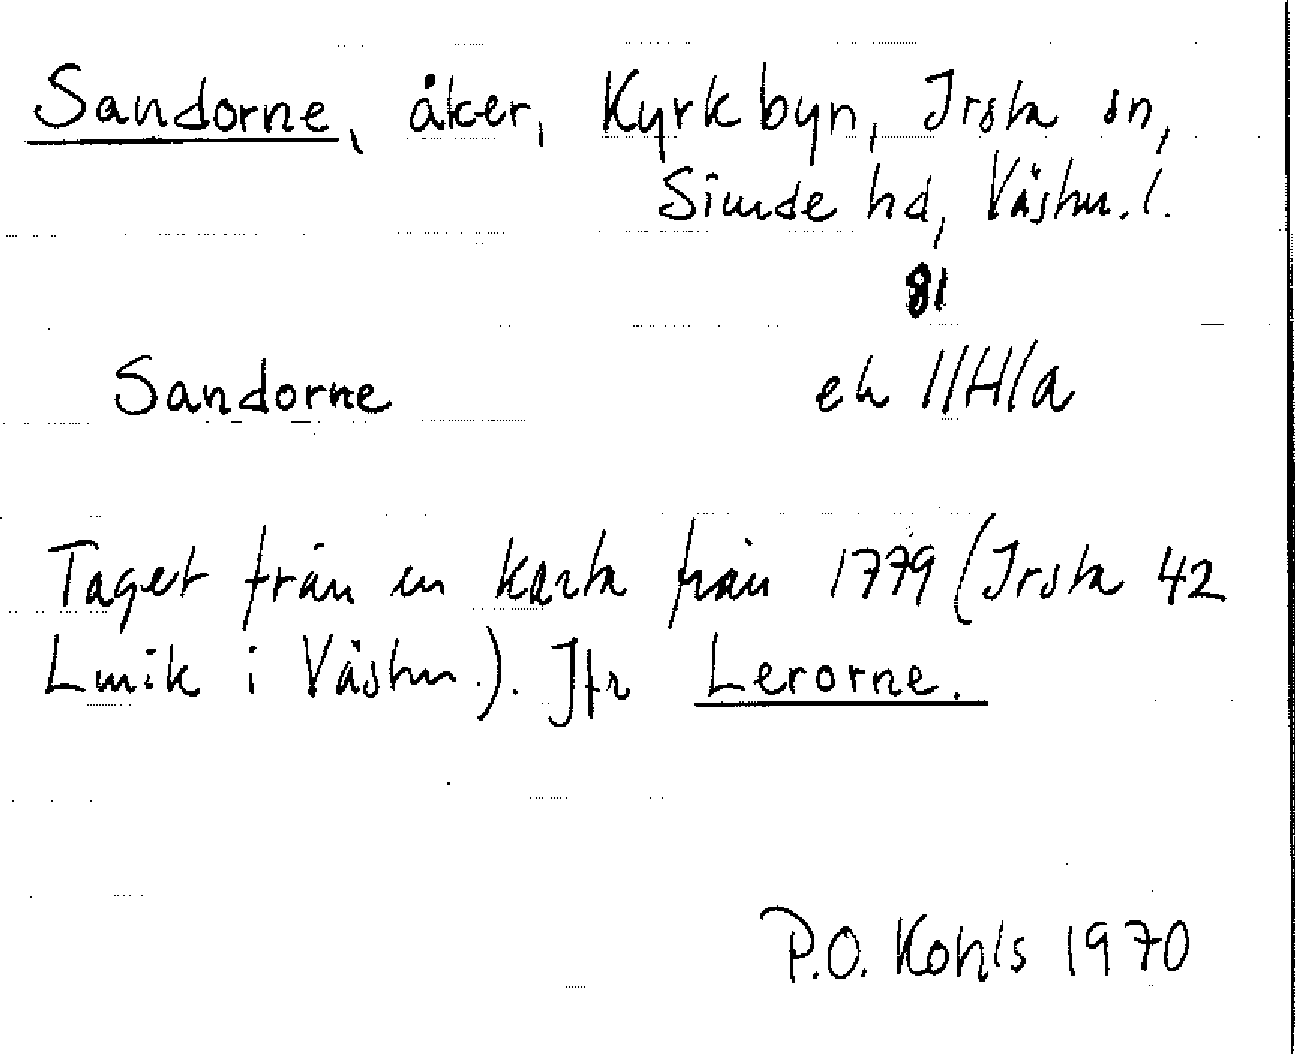 Sandorne, åker, Kyrkbyn, Irsta sn,
Siende hd, Västm. l.
81
Sandorne ek 11H1a
Taget från en karta från 1779 (Irsta 42
Lmik i Västm.). Jfr Lerorne.
P.O. Kohls 1970